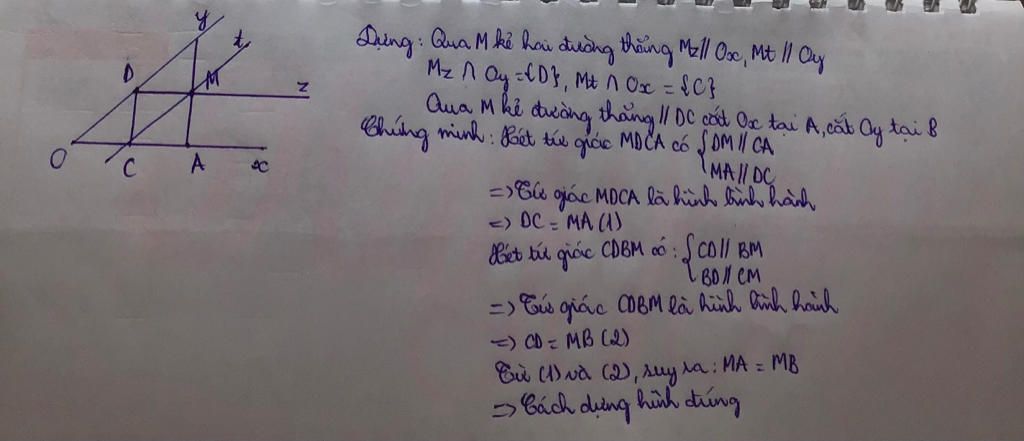 y
t
D
M
z
O
C
A
x
Dựng: Qua M kẻ hai đường thẳng Mz // Ox, Mt // Oy
Mz ∩ Oy = {D}, Mt ∩ Ox = {C}
Qua M kẻ đường thẳng // DC cắt Ox tại A, cắt Oy tại B
Chứng minh: Xét tứ giác MDCA có { DM // CA
MA // DC
=> Tứ giác MDCA là hình bình hành
=> DC = MA (1)
Xét tứ giác CDBM có: { CD // BM
BD // CM
=> Tứ giác CDBM là hình bình hành
=> CD = MB (2)
Từ (1) và (2), suy ra: MA = MB
=> Cách dựng hình đúng